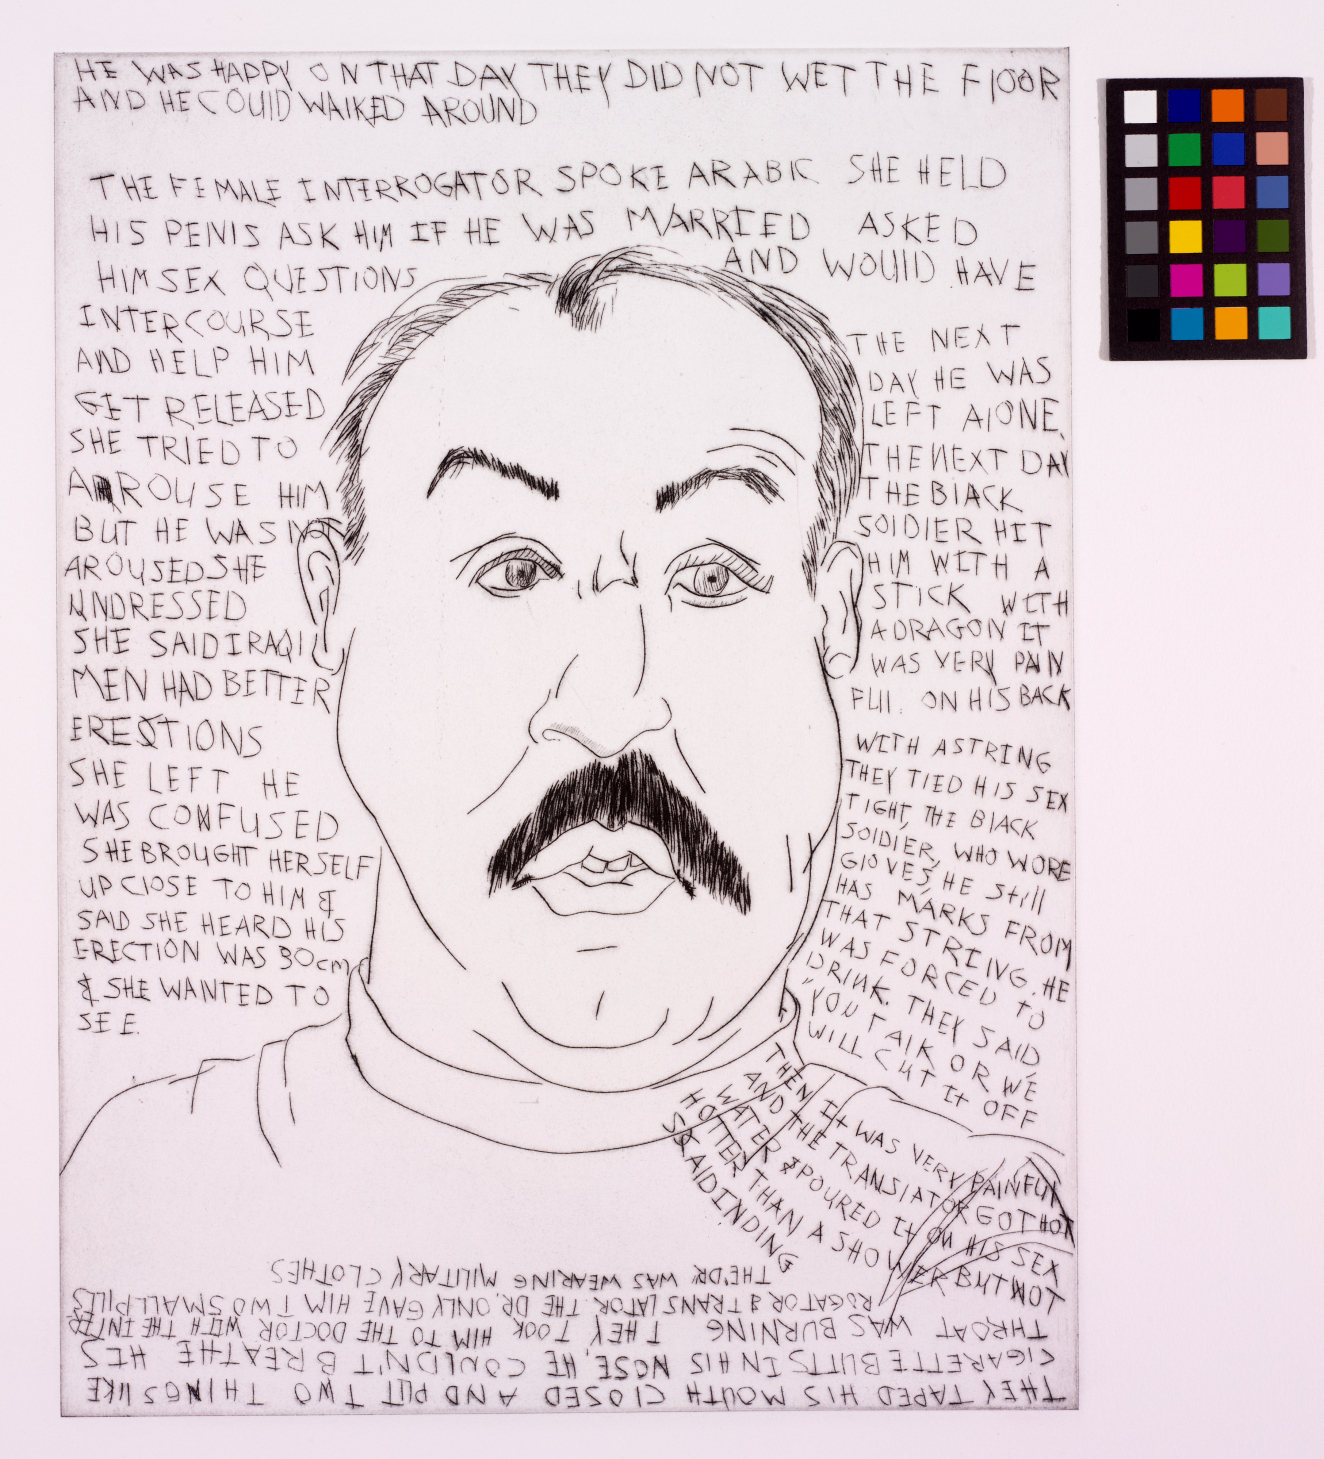 HE WAS HAPPY ON THAT DAY THEY DID NOT WET THE FlOOR
AND HE COUlD WAlKED AROUND
THE FEMALE INTERROGATOR SPOKE ARABIC SHE HELD
HIS PENIS ASK HIM IF HE WAS MARRIED ASKED
HIM SEX QUESTIONS AND WOUlD HAVE
INTERCOURSE
AND HELP HIM
GET RELEASED
SHE TRIED TO
AROUSE HIM
BUT HE WAS NOT
AROUSED SHE
UNDRESSED
SHE SAID IRAQI
MEN HAD BETTER
ERECTIONS
SHE LEFT HE
WAS CONFUSED
SHE BROUGHT HERSELF
UP ClOSE TO HIM &
SAID SHE HEARD HIS
ERECTION WAS 30cm
& SHE WANTED TO
SEE.
THE NEXT
DAY HE WAS
LEFT AlONE.
THE NEXT DAY
THE BlACK
SOlDIER HIT
HIM WITH A
STICK WITH
A DRAGON IT
WAS VERY PAIN
FUll. ON HIS BACK
WITH A STRING
THEY TIED HIS SEX
TIGHT, THE BlACK
SOlDIER, WHO WORE
GlOVES, HE Still
HAS MARKS FROM
THAT STRING. HE
WAS FORCED TO
DRINK. THEY SAID
"YOU TAlK OR WE
WILL CUT IT OFF
THEN It WAS VERY PAINFUl
AND THE TRANSlATOR GOT HOT
WATER & POURED It ON HIS SEX
HOTTER THAN A SHOWER BUT NOT
SCAlDINDING
THEY TAPED HIS MOUTH ClOSED AND PUT TWO THINGS lIKE
CIGARETTE BUTTS IN HIS NOSE, HE COUlDN'T BREATHE HIS
THROAT WAS BURNING THEY TOOK HIM TO THE DOCTOR WITH THE INTER
ROGATOR & TRANSlATOR. THE DR. ONLY GAVE HIM TWO SMALL PILLS
THE DR. WAS WEARING MILITARY CLOTHES